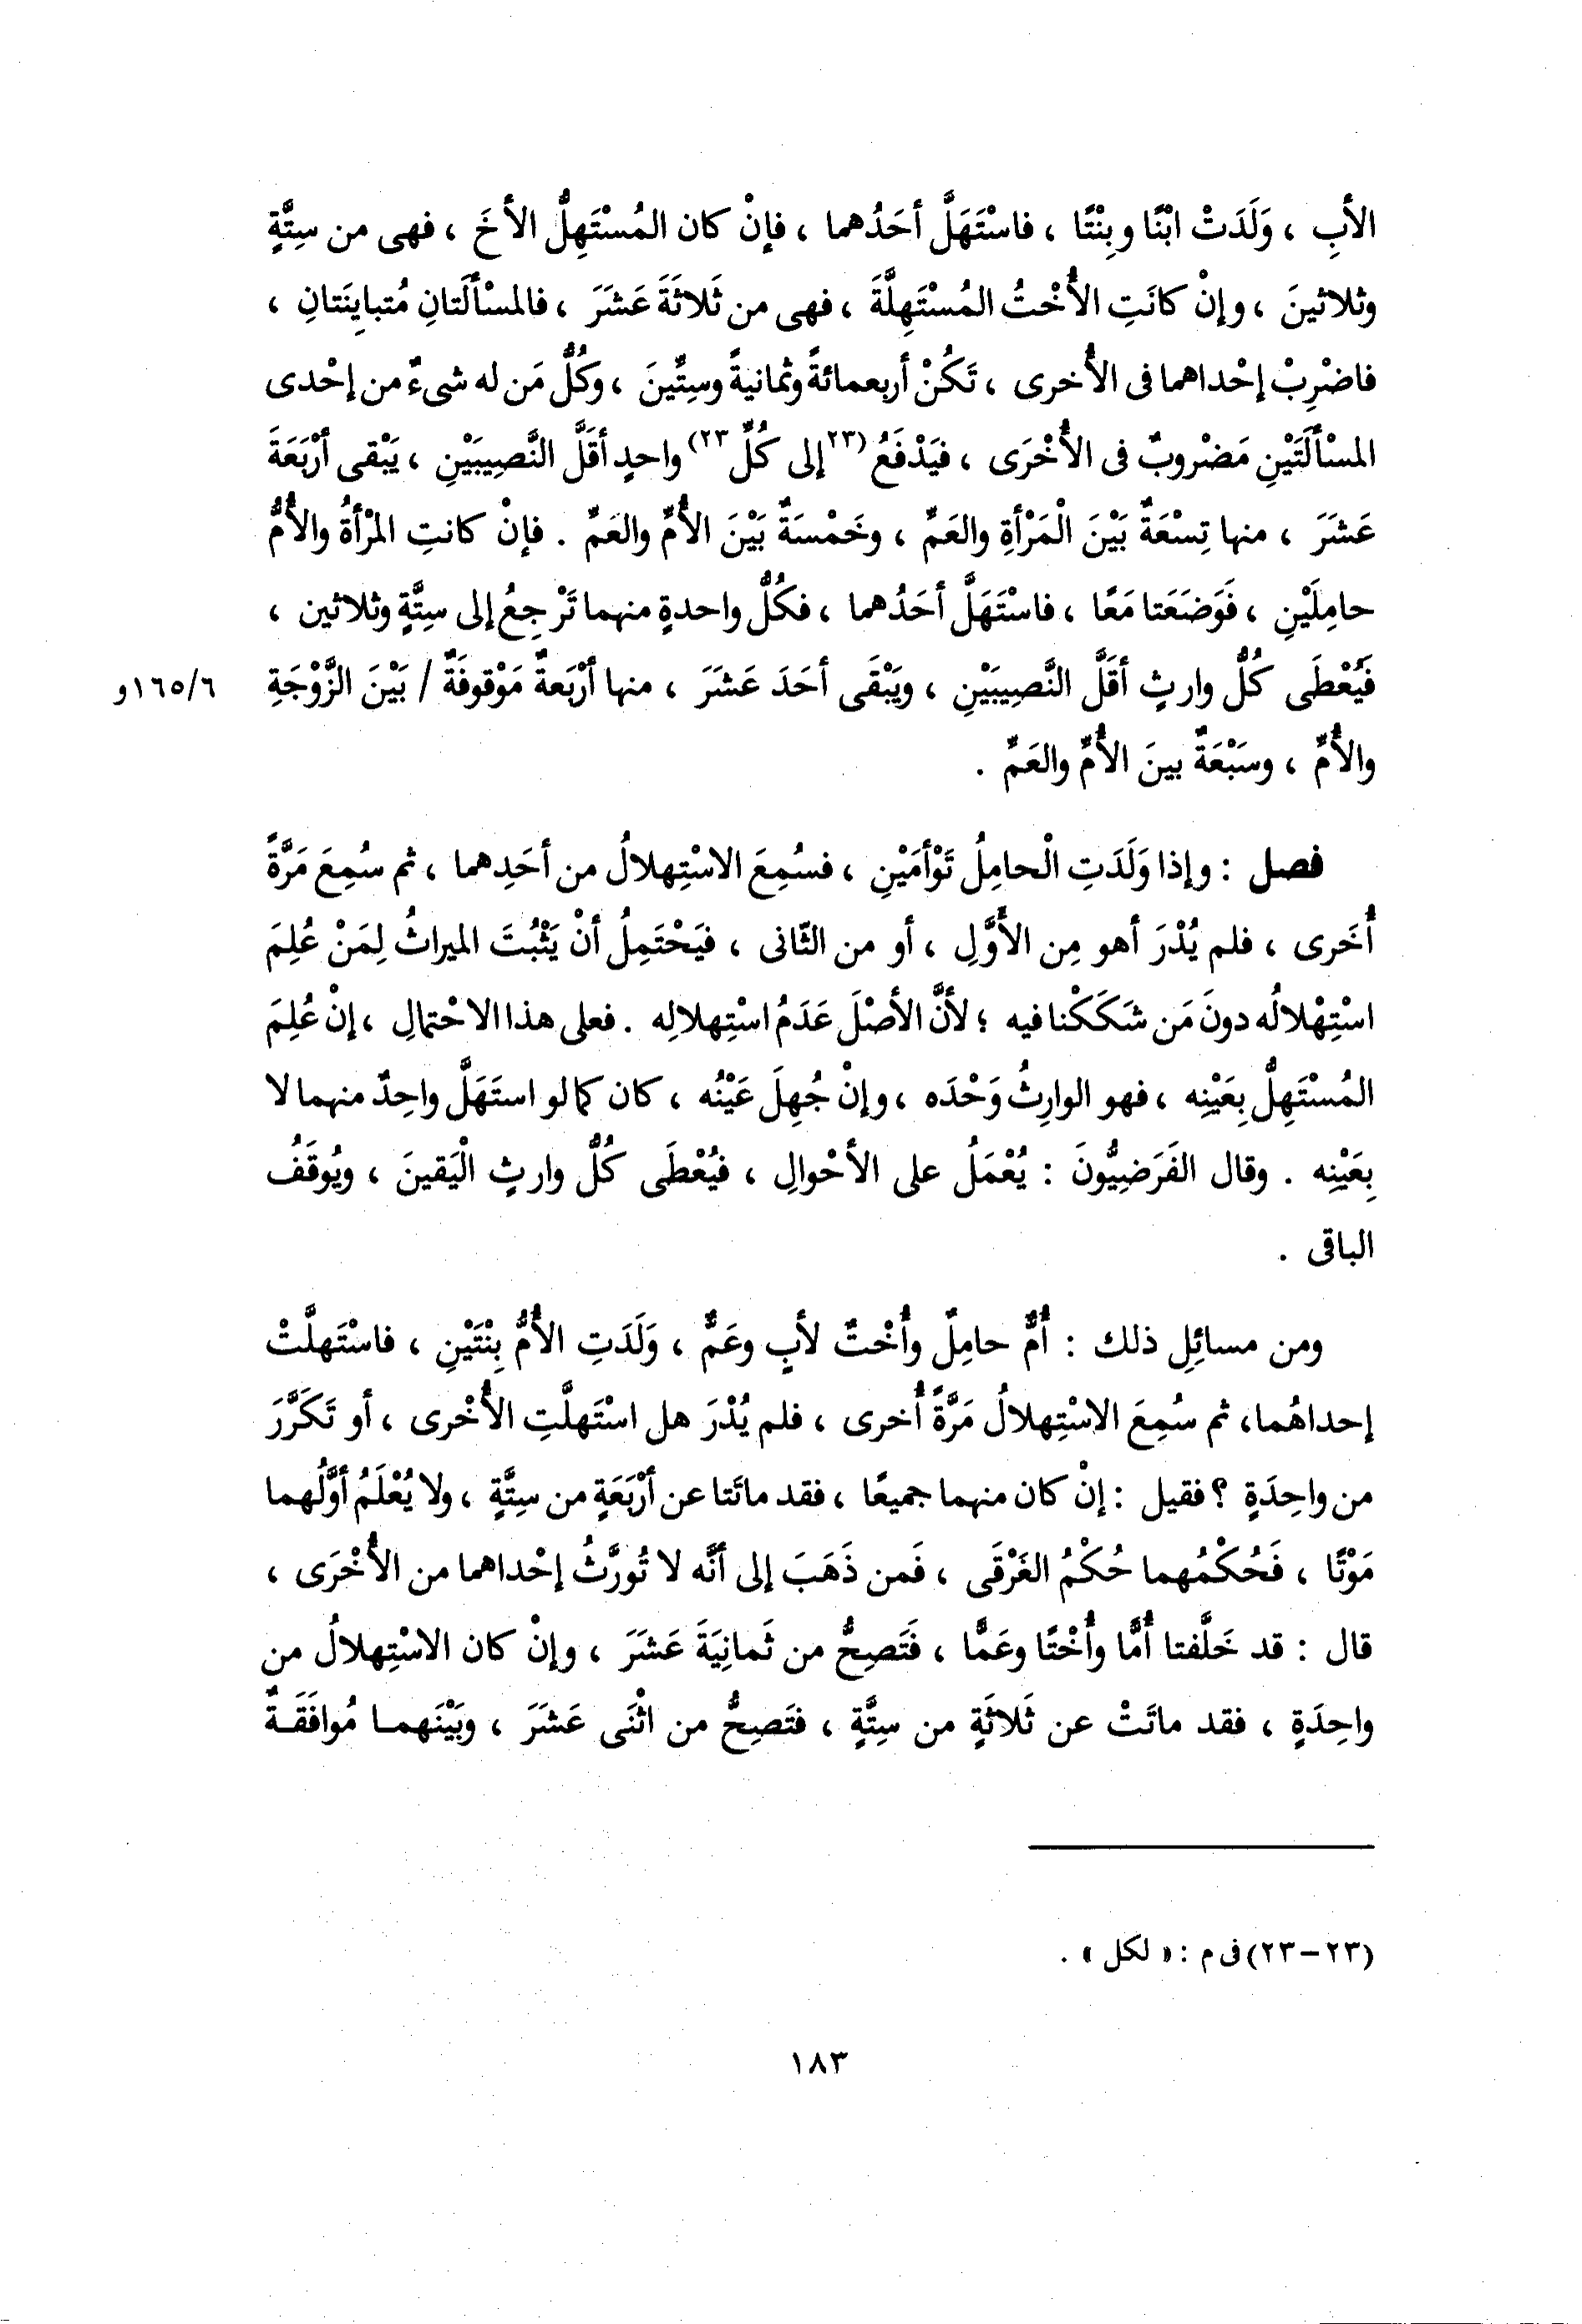 الأبِ ، وَلَدَتْ ابْنًا وبِنْتًا ، فاسْتَهَلَّ أحَدُهما ، فإنْ كان المُسْتَهِلُّ الأخَ ، فهى من سِتَّةٍ
وثلاثينَ ، وإنْ كانَتِ الأُخْتُ المُسْتَهِلَّةَ ، فهى من ثَلاثَةَ عَشَرَ ، فالمسْألَتانِ مُتبايِنَتانِ ،
فاضْرِبْ إحْداهما فى الأُخرى ، تَكُنْ أربعمائةً وثمانيةً وسِتِّينَ ، وكُلُّ مَن له شىءٌ من إحْدى
المسْألَتَيْنِ مَضْروبٌ فى الأُخْرَى ، فيَدْفَعُ (٢٣إلى كُلِّ٢٣) واحدٍ أقَلَّ النَّصِيبَيْنِ ، يَبْقى أرْبَعَةَ
عَشَرَ ، منها تِسْعَةٌ بَيْنَ الْمَرْأةِ والعَمِّ ، وخَمْسَةٌ بَيْنَ الأُمِّ والعَمِّ . فإنْ كانتِ المرْأةُ والأُمُّ
حامِلَيْنِ ، فَوَضَعَتا مَعًا ، فاسْتَهَلَّ أحَدُهما ، فكُلُّ واحدةٍ منهما تَرْجِعُ إلى سِتَّةٍ وثلاثين ،
فَيُعْطَى كُلُّ وارثٍ أقَلَّ النَّصِيبَيْنِ ، ويَبْقَى أحَدَ عَشَرَ ، منها أرْبَعةٌ مَوْقوفَةٌ / بَيْنَ الزَّوْجَةِ ١٦٥/٦و
والأُمِّ ، وسَبْعَةٌ بينَ الأُمِّ والعَمِّ .
فصل : وإذا وَلَدَتِ الْحامِلُ تَوْأمَيْنِ ، فسُمِعَ الاسْتِهلالُ من أحَدِهما ، ثم سُمِعَ مَرَّةً
أُخَرى ، فلم يُدْرَ أهو مِن الأَوَّلِ ، أو من الثّانى ، فيَحْتَمِلُ أنْ يَثْبُتَ الميراثُ لِمَنْ عُلِمَ
اسْتِهْلالُه دونَ مَن شكَكْنا فيه ؛ لأنَّ الأصْلَ عَدَمُ اسْتِهلالِه . فعلى هذا الاحْتمالِ ، إنْ عُلِمَ
المُسْتَهِلُّ بِعَيْنِه ، فهو الوارِثُ وَحْدَه ، وإنْ جُهِلَ عَيْنُه ، كان كما لو استَهَلَّ واحِدٌ منهما لا
بِعَيْنِه . وقال الفَرَضِيُّونَ : يُعْمَلُ على الأحْوالِ ، فيُعْطَى كُلُّ وارثٍ الْيَقينَ ، ويُوقَفُ
الباقى .
ومن مسائِلِ ذلك : أُمٌّ حامِلٌ وأُخْتٌ لأبٍ وعَمٌّ ، وَلَدَتِ الأُمُّ بِنْتَيْنِ ، فاسْتَهلَّتْ
إحداهُما، ثم سُمِعَ الاسْتِهلالُ مَرَّةً أُخرى ، فلم يُدْرَ هل اسْتَهلَّتِ الأُخْرى ، أو تَكَرَّرَ
من واحِدَةٍ ؟ فقيل : إنْ كان منهما جميعًا ، فقد ماتَتا عن أرْبَعَةٍ من سِتَّةٍ ، ولا يُعْلَمُ أوَّلُهما
مَوْتًا ، فَحُكْمُهما حُكْمُ الغَرْقَى ، فَمن ذَهَبَ إلى أنَّه لا تُورَّثُ إحْداهما من الأُخْرَى ،
قال : قد خَلَّفتا أُمًّا وأُخْتًا وعَمًّا ، فَتَصِحُّ من ثَمانِيَةَ عَشَرَ ، وإنْ كان الاسْتِهلالُ من
واحِدَةٍ ، فقد ماتَتْ عن ثَلاثَةٍ من سِتَّةٍ ، فتَصِحُّ من اثْنَى عَشَرَ ، وبَيْنَهمـا مُوافَقَـةٌ
(٢٣-٢٣) فى م : « لكل » .
١٨٣